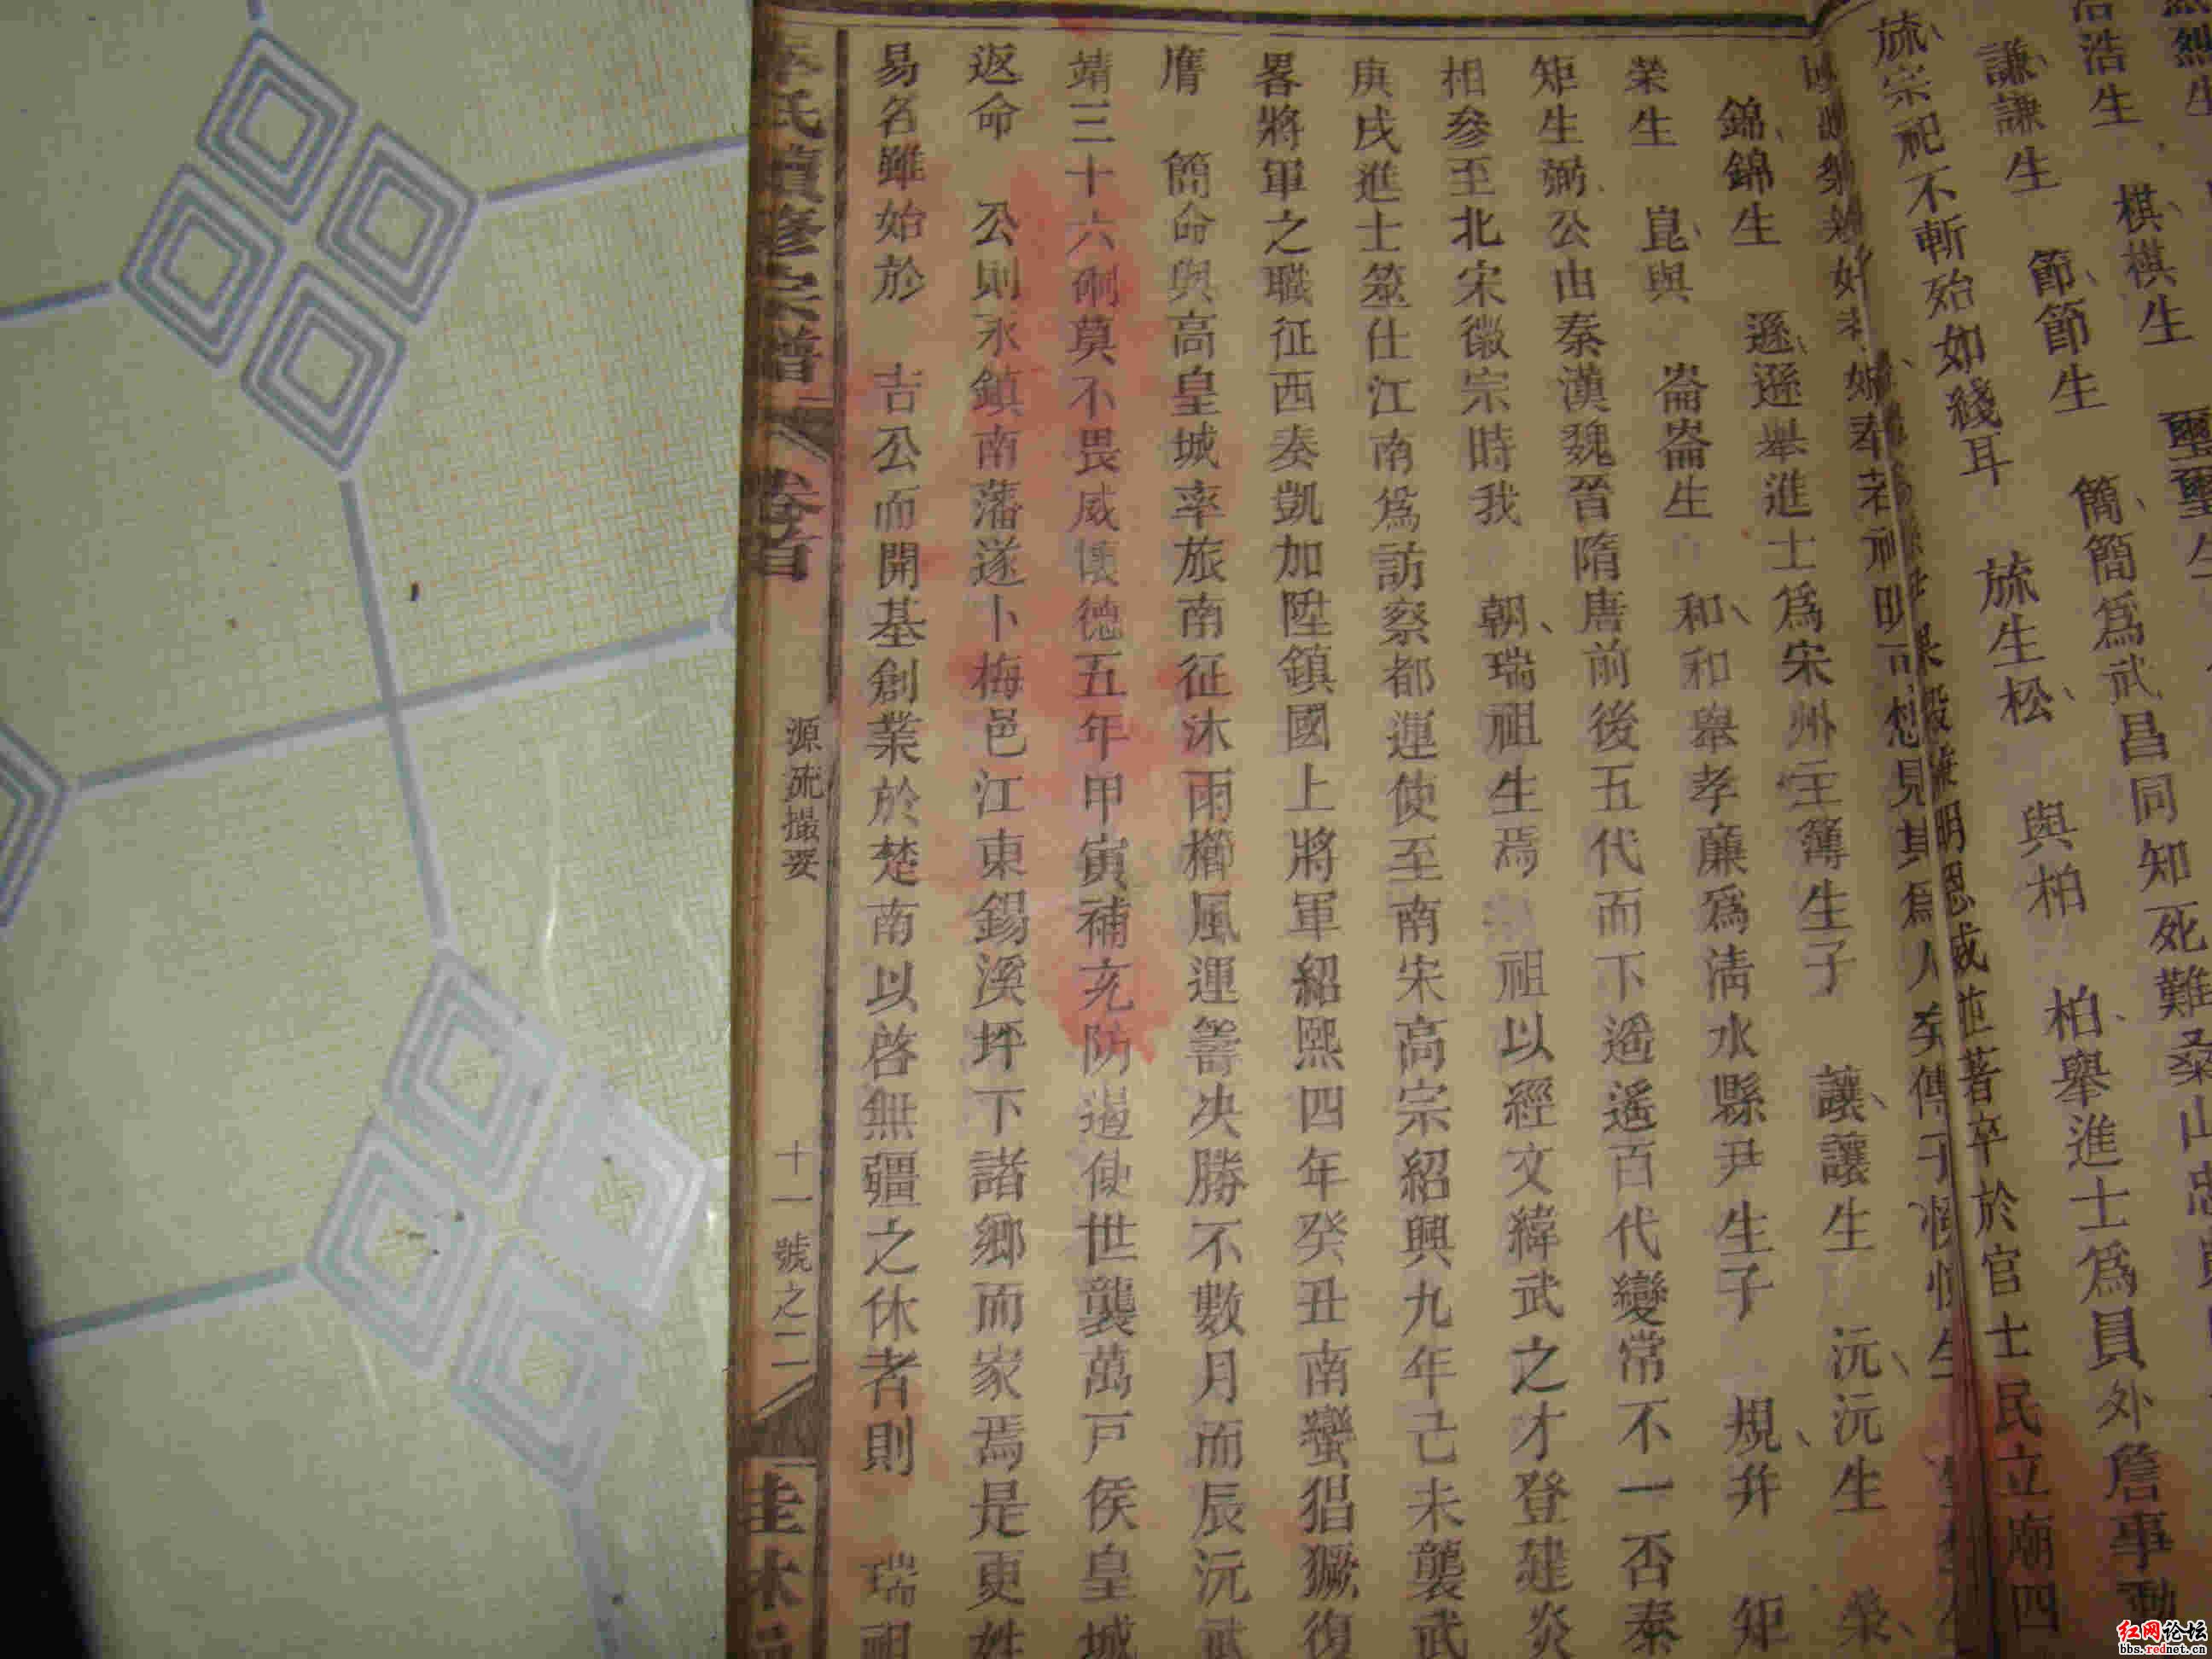 烈烈生
浩浩生 棋棋生 璽璽生
謙謙生 節節生 簡簡爲武昌同知死難桑山忠
旒宗祀不斬殆如綫耳 旒生松 與柏 柏舉進士爲員外詹事
明恩威並著卒於官士民立廟四
想見其爲人
錦錦生 遜遜舉進士爲宋州主簿生子 讓讓生 沅沅生 榮
榮生 崑與 崙崙生 和和舉孝廉爲淸水縣尹生子 規幷 矩
矩生弼公由秦漢魏晉隋唐前後五代而下遥遥百代變常不一否泰
相參至北宋徽宗時我 朝瑞祖生焉 祖以經文緯武之才登建炎
庚戌進士筮仕江南爲訪察都運使至南宋高宗紹興九年己未襲武
畧將軍之職征西奏凱加陞鎮國上將軍紹熙四年癸丑南蠻猖獗復
膺 簡命與高皇城率旅南征沐雨櫛風運籌决勝不數月而辰沅武
靖三十六峒莫不畏威懷德五年甲寅補充防遏使世襲萬戸侯皇城
返命 公則永鎮南藩遂卜梅邑江東錫溪坪下諸鄉而家焉是更姓
易名雖始於 吉公而開基創業於楚南以啓無疆之休者則 瑞祖
氏續修宗譜 卷首 源流撮要 十一號之二
红网论坛
bbs.rednet.cn